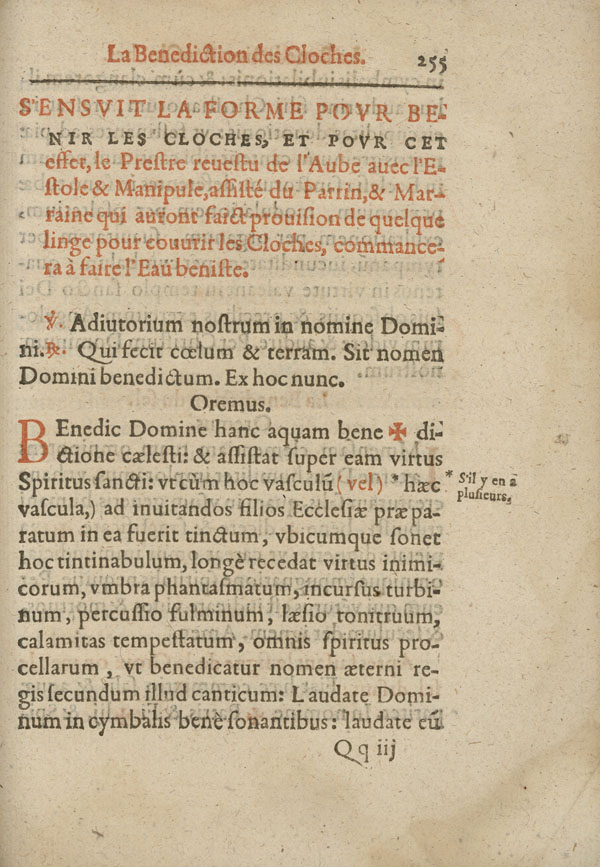 La Benediction des Cloches. 255
S'ENSVIT LA FORME POVR BE-
NIR LES CLOCHES, ET POVR CET
effet, le Prestre reuestu de l'Aube auec l'E-
stole & Manipule, assisté du Parrin, & Mar-
raine qui auront faict prouision de quelque
linge pour couurir les Cloches, commance-
ra à faire l'Eau beniste.
℣. Adiutorium nostrum in nomine Domi-
ni. ℟. Qui fecit cœlum & terram. Sit nomen
Domini benedictum. Ex hoc nunc.
Oremus.
BEnedic Domine hanc aquam bene ✠ di-
ctione cælesti: & assistat super eam virtus
Spiritus sancti: vt cùm hoc vasculũ (vel) * hæc
* S'il y en a
plusieurs.
vascula,) ad inuitandos filios Ecclesiæ præpa-
ratum in ea fuerit tinctum, vbicumque sonet
hoc tintinabulum, longè recedat virtus inimi-
corum, vmbra phantasmatum, incursus turbi-
num, percussio fulminum, læsio tonitruum,
calamitas tempestatum, omnis spiritus pro-
cellarum, vt benedicatur nomen æterni re-
gis secundum illud canticum: Laudate Domi-
num in cymbalis benè sonantibus: laudate eũ
Qq iij